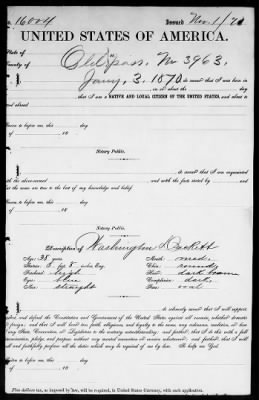 No. 16004 Issued Nov. 1/71
UNITED STATES OF AMERICA.
State of
County of
Old Pass. No 3963.
Jany. 3. 1870
that I am a NATIVE AND LOYAL CITIZEN OF THE UNITED STATES, and about to
travel abroad
Sworn to before me, this day
of 18
Notary Public.
that I am acquainted
with the above-named and with the facts stated by
are true to the best of my knowledge and belief
Sworn to before me, this day
of 18
Notary Public.
Description of Washington Beckett
Age: 38 years Mouth: med.
Stature: 5 ft 8 inches, Eng. Chin: round
Forehead: high Hair: dark brown
Eyes: blue Complexion: dark
Nose: straight Face: oval
do solemnly swear that I will support,
protect, and defend the Constitution and Government of the United States against all enemies, whether domestic
or foreign; and that I will bear true faith, allegiance, and loyalty to the same, any ordinance, resolution, or law
of any State, Convention, or Legislature to the contrary notwithstanding; and further, that I do this with a full
determination, pledge, and purpose, without any mental reservation or evasion whatsoever; and further, that I will
well and faithfully perform all the duties which may be required of me by law: So help me God.
Sworn to before me, this day
of 18
Notary Public.
Five dollars tax, as imposed by law, will be required, in United States Currency, with each application.